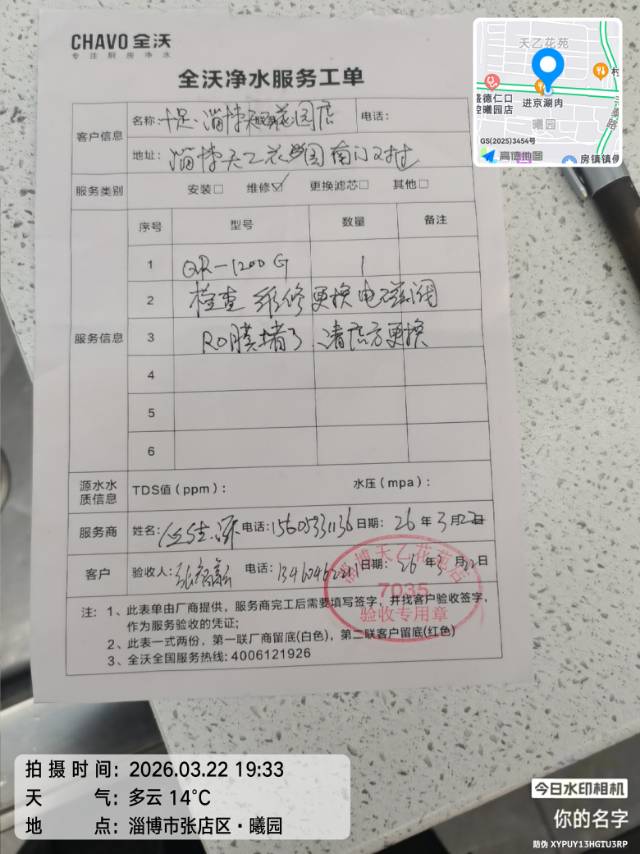 CHAVO 全沃
专注厨房净水
全沃净水服务工单
客户信息
名称: 十足·淄博天乙花园店 电话:
地址: 淄博天乙花园南门对过
服务类别 安装□ 维修☑ 更换滤芯□ 其他□
服务信息
序号 型号 数量 备注
1 QR-1200G 1
2 检查 维修更换电磁阀
3 RO膜堵了 请店方更换
4
5
6
源水水质信息 TDS值(ppm): 水压(mpa):
服务商 姓名: 电话: 15605331136 日期: 26年3月22日
客户 验收人: 电话: 日期: 26年3月22日
淄博天乙花苑店
7035
验收专用章
注: 1、此表单由厂商提供,服务商完工后需要填写签字,并找客户验收签字,
作为服务验收的凭证;
2、此表一式两份,第一联厂商留底(白色),第二联客户留底(红色)
3、全沃全国服务热线: 4006121926
天乙花苑
进京涮肉
曦园
GS(2025)3454号
高德地图
房镇镇
拍摄时间: 2026.03.22 19:33
天气: 多云 14℃
地点: 淄博市张店区·曦园
今日水印相机
你的名字
防伪 XYPUY13HGTU3RP